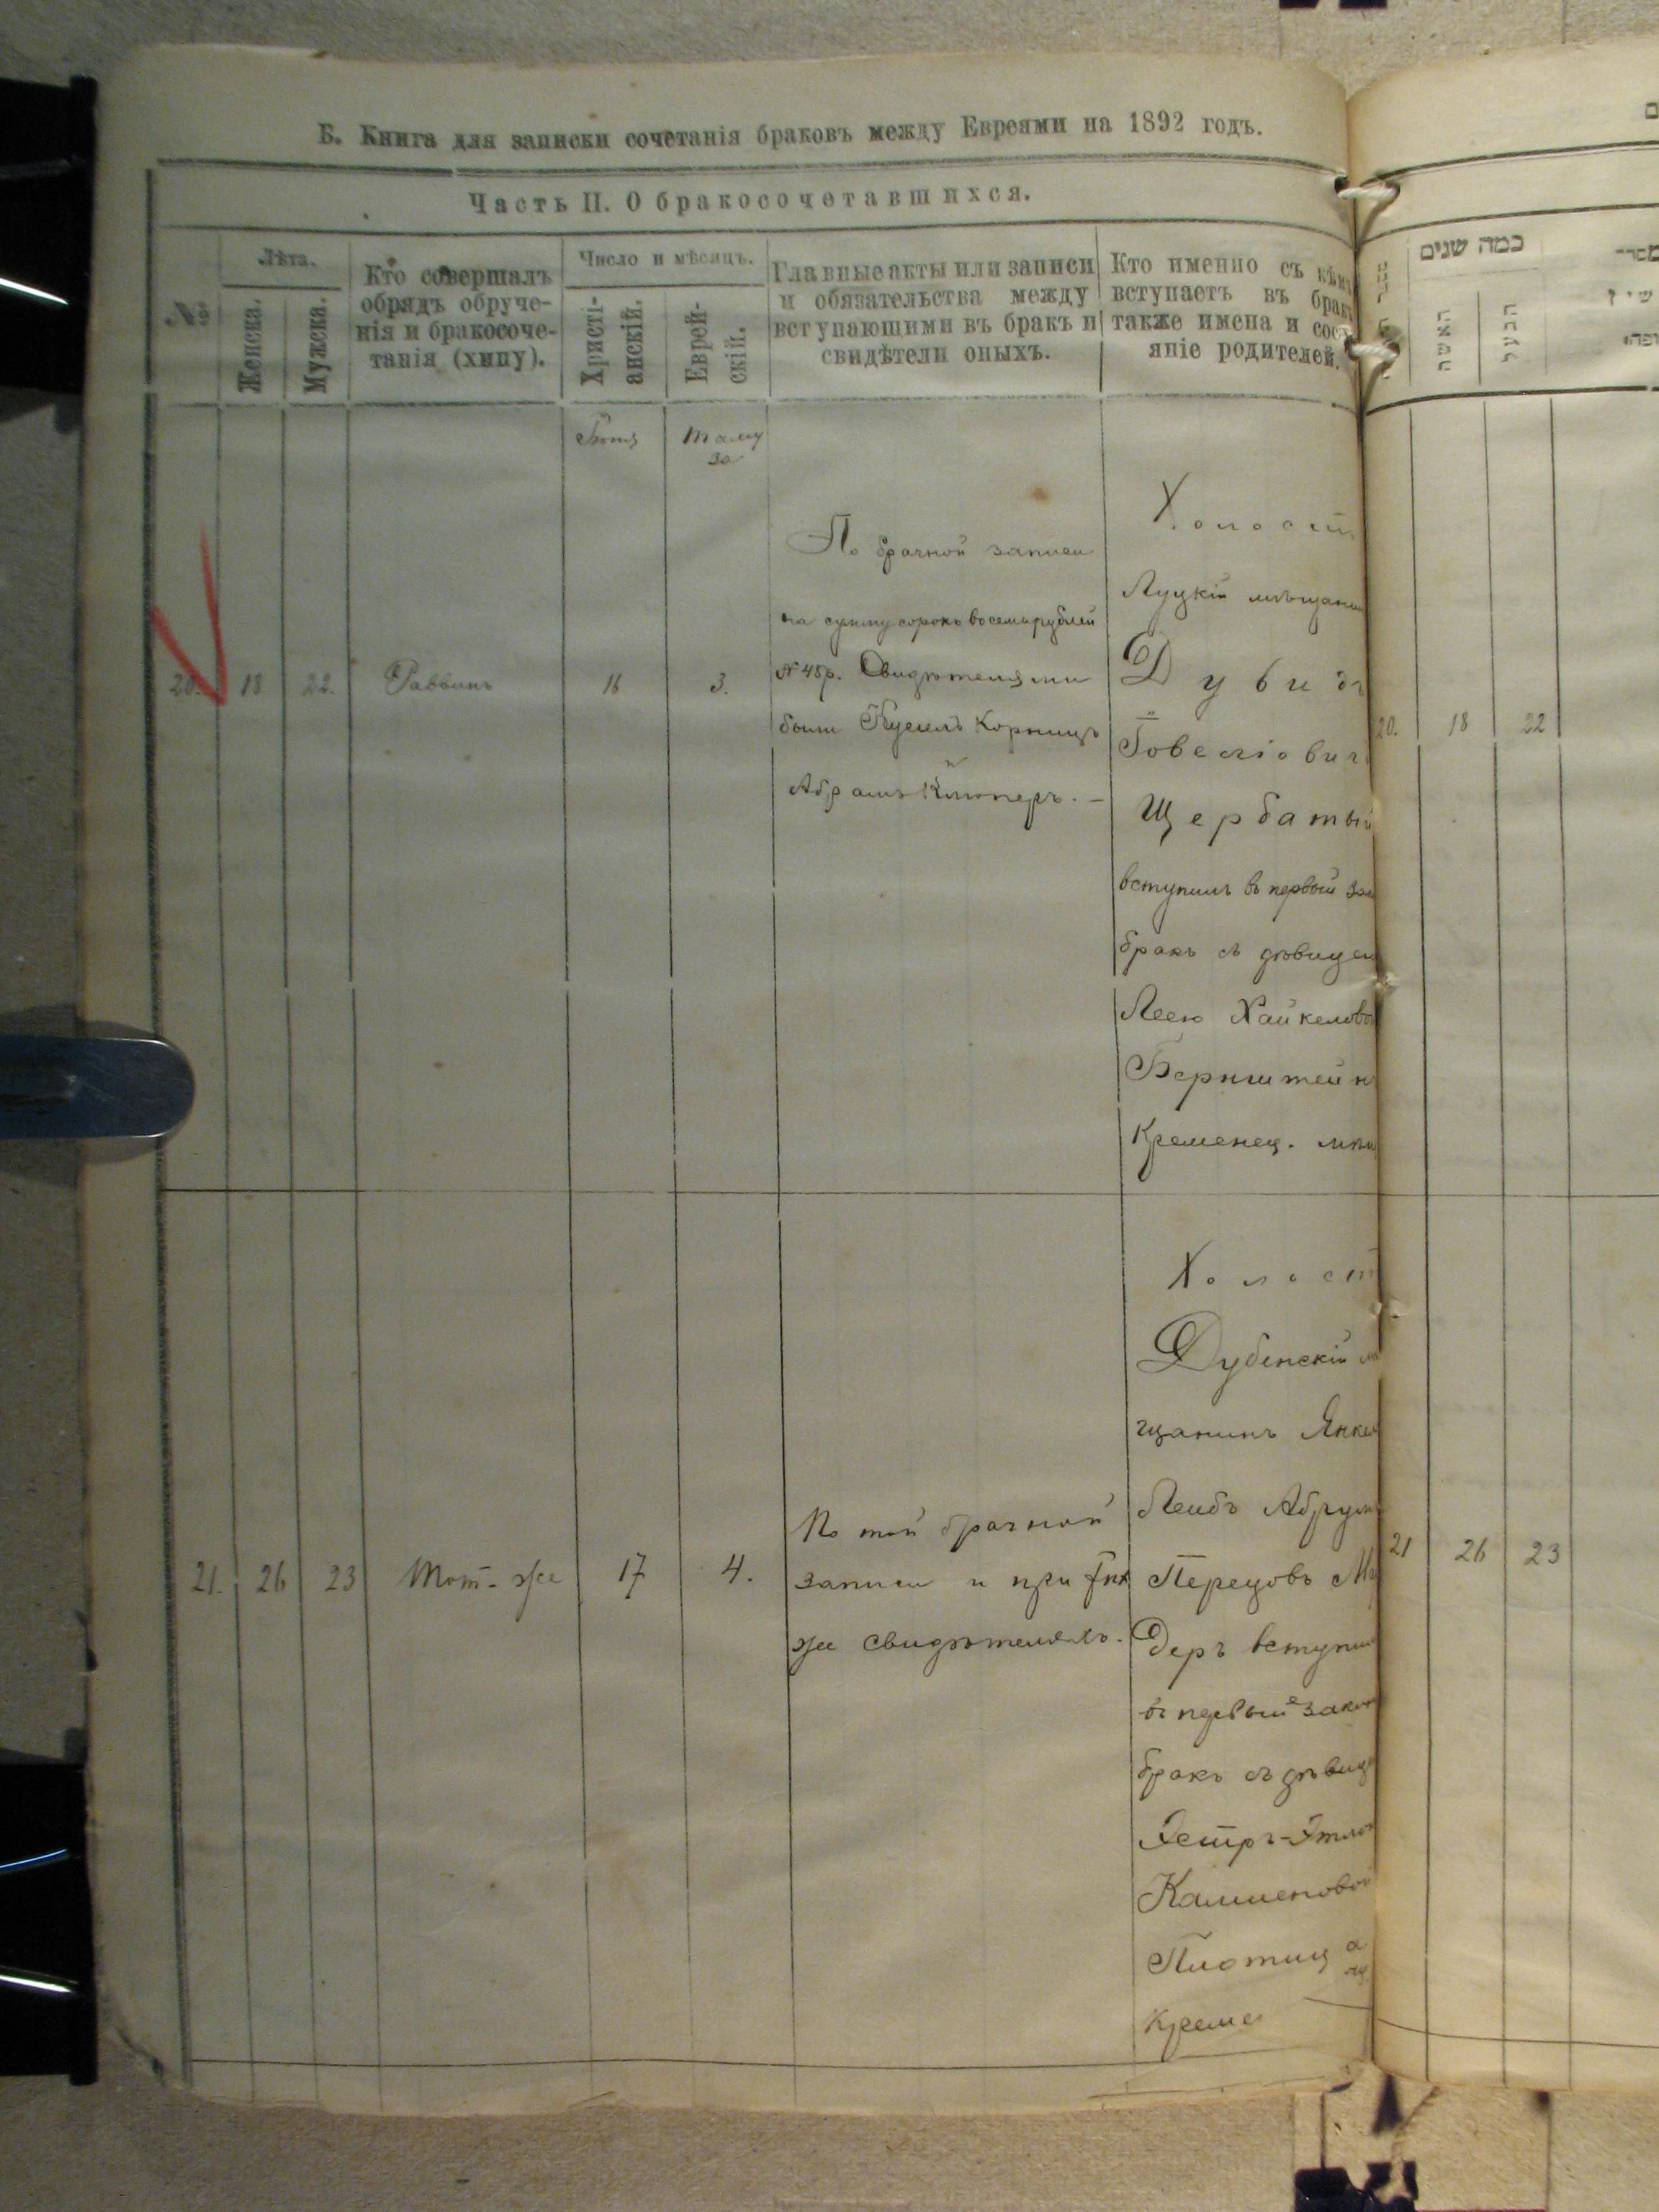 Б. Книга для записки сочетанія браковъ между Евреями на 1892 годъ.
Часть II. О бракосочетавшихся.
№
Лѣта.
Женска.
Мужска.
Кто совершалъ
обрядъ обруче-
нія и бракосоче-
танія (хипу).
Число и мѣсяцъ.
Христі-
анскій.
Еврей-
скій.
Главные акты или записи
и обязательства между
вступающими въ бракъ и
свидѣтели оныхъ.
Кто именно съ кѣмъ
вступаетъ въ брак
также имена и сос
яніе родителей.
Іюня
Тамуза
20. 18 22. Раввинъ 16 3.
По брачной записи
на сумму сорокъ восемь рублей
№ 48 р. Свидѣтелями
были Кусель Корницъ
Абрамъ Клюперъ. –
Холост
Луцкій мѣщани
Дувидъ
Іовеліович
Щербатый
вступилъ въ первый зак
бракъ съ дѣвицею
Леею Хайкелово
Бернштейнъ
Кременец. мѣщ
21. 26 23 Тот-же 17 4.
По той брачной
записи и при тѣх
же свидѣтеляхъ.
Холост
Дубенскій мѣ
щанинъ Янкел
Лейбъ Абрум
Перецовъ М
деръ вступил
въ первый закон
бракъ съ дѣвице
Эстръ-Этлею
Калменовой
Плотица
Креме
כמה שנים
האשה
הבעל
20. 18 22
21 26 23